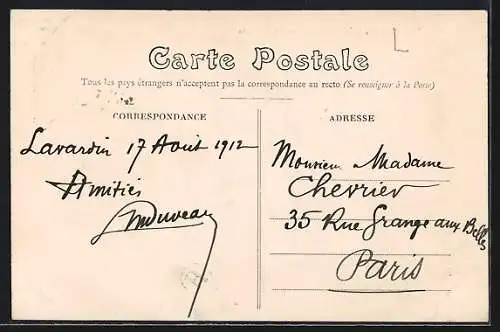 Carte Postale
Tous les pays étrangers n'acceptent pas la correspondance au recto (Se renseigner à la Poste)
CORRESPONDANCE
Lavardin 17 Août 1912
Amitiés
ADRESSE
Monsieur Madame
Chevrier
35 Rue Grange aux Belles
Paris